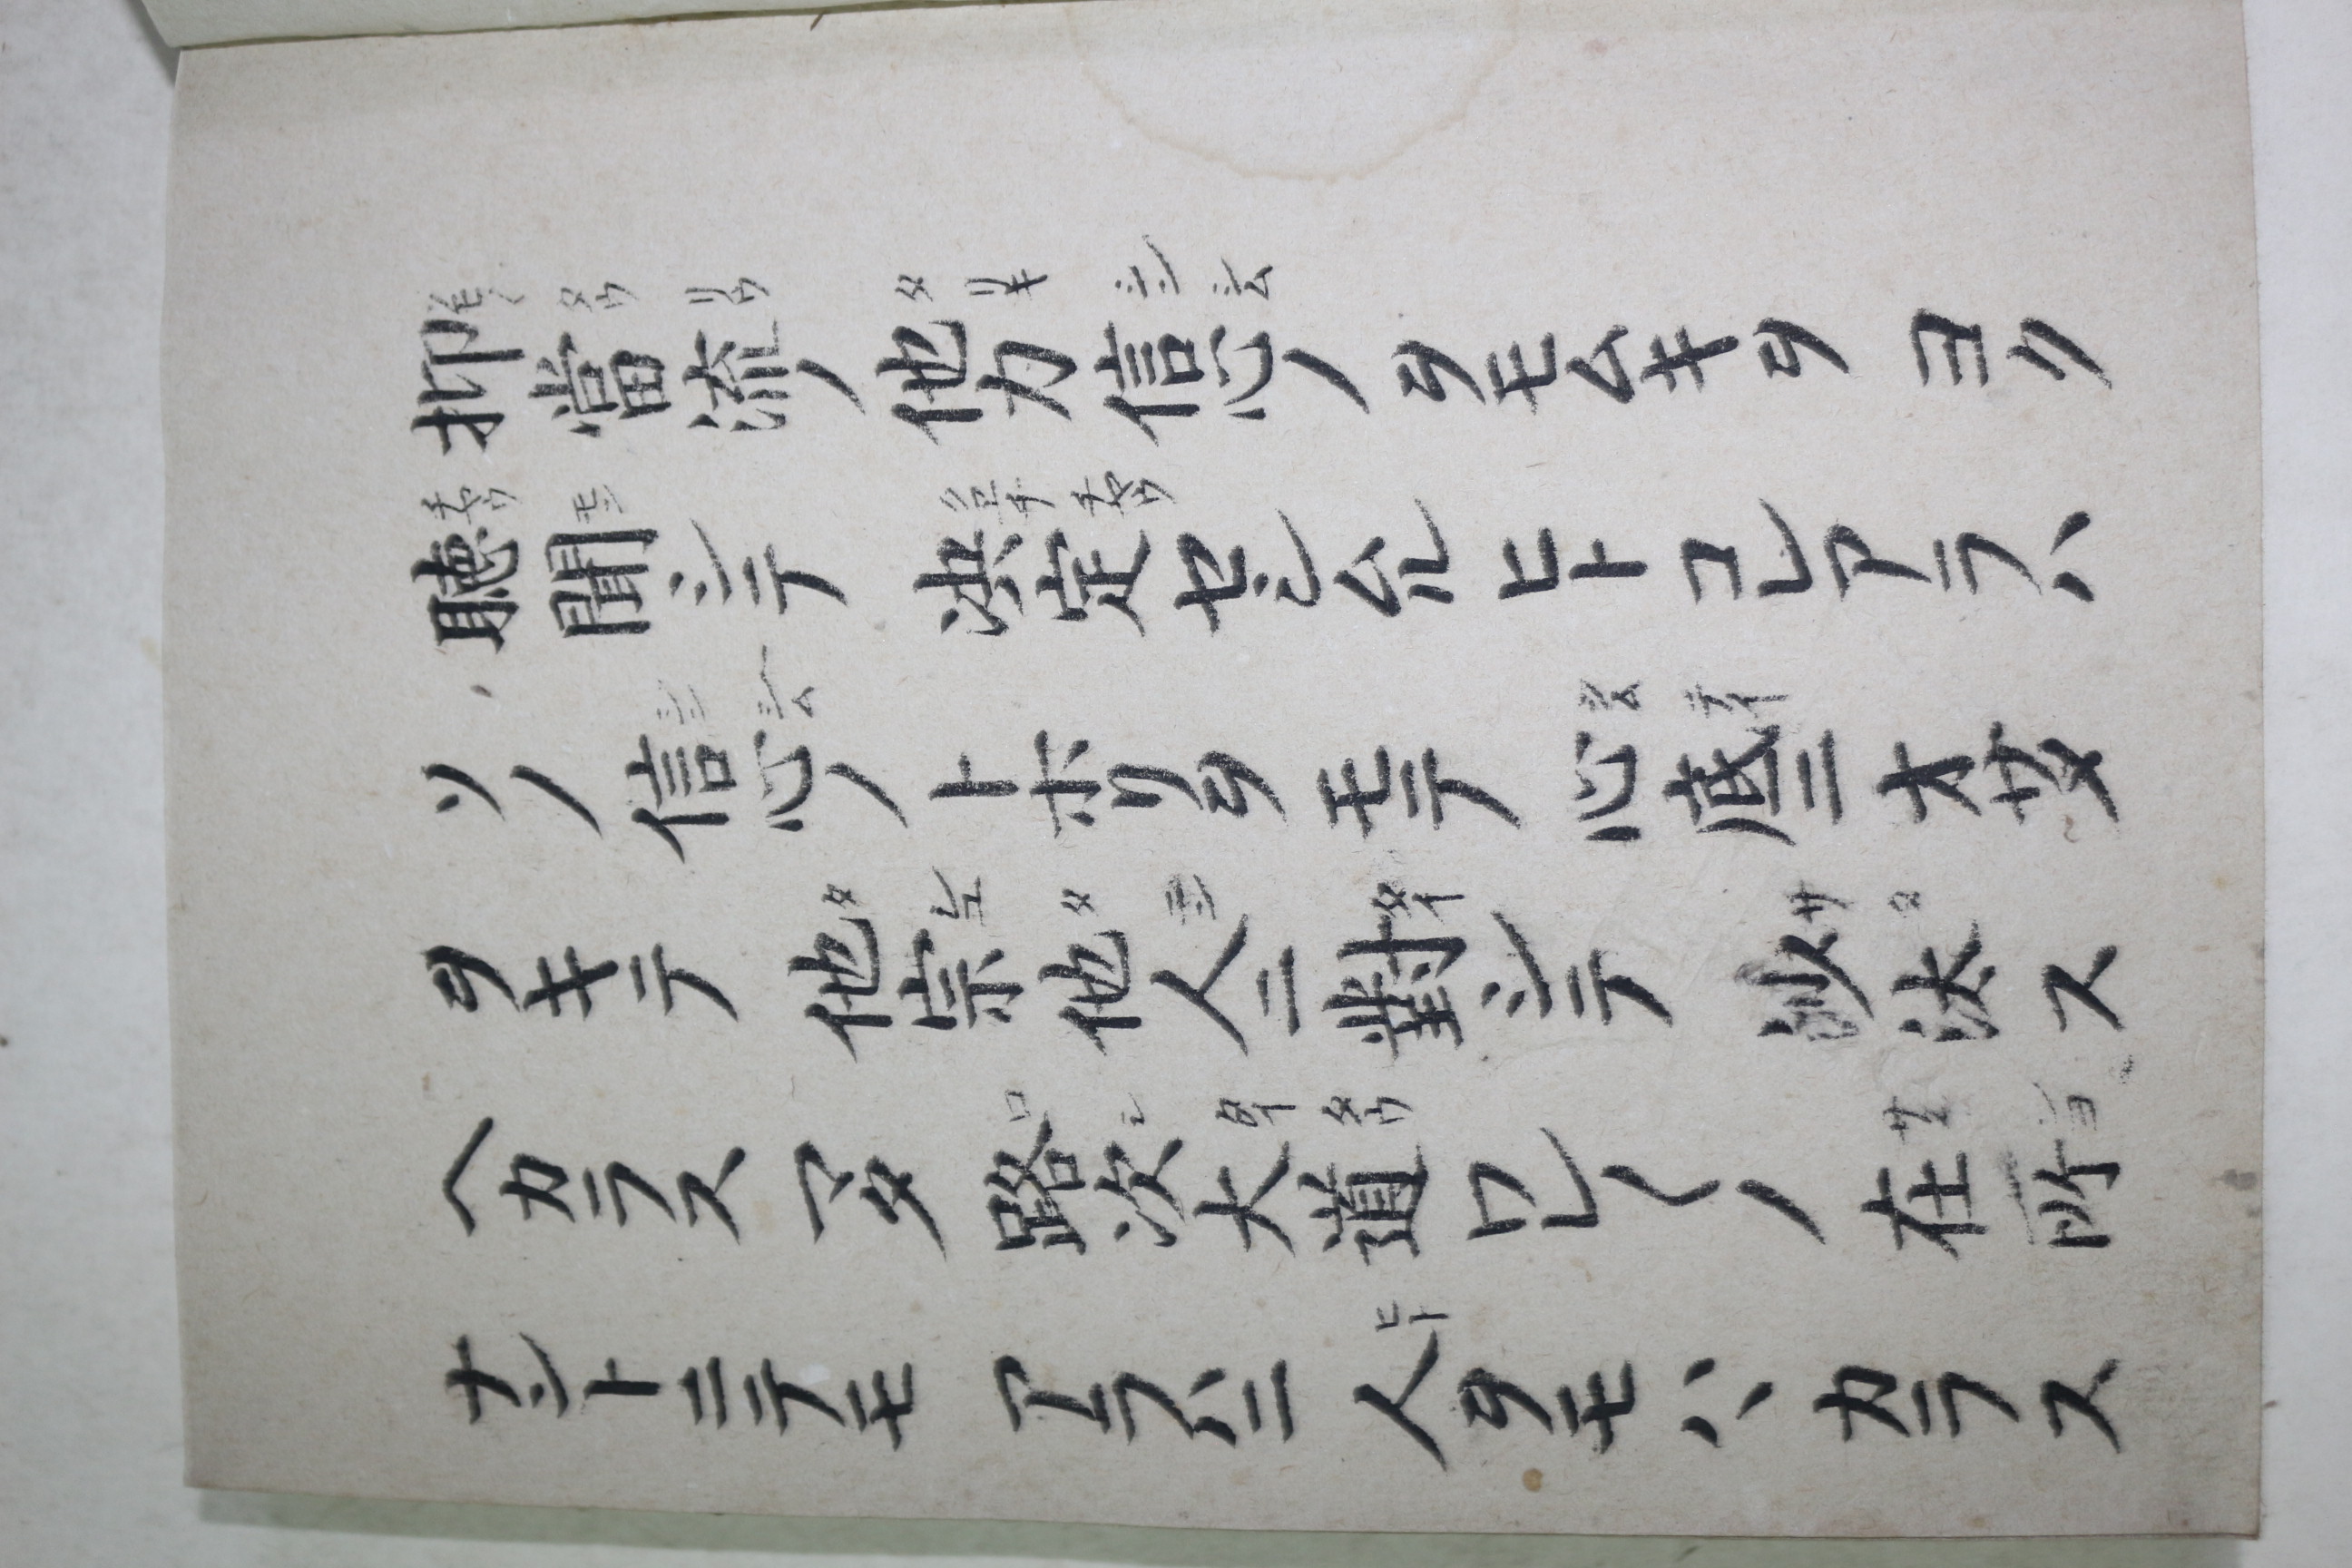 抑當流ノ他力信心ノヲモムキヲヨク
聴聞シテ決定セシムルヒトコレアラハ
ソノ信心ノトホリヲモテ心底ニオサメ
ヲキテ他宗他人ニ對シテ沙汰ス
ヘカラスマタ路次大道ワレ〱ノ在所
ナントニテモアラハニ人ヲモハヽカラス